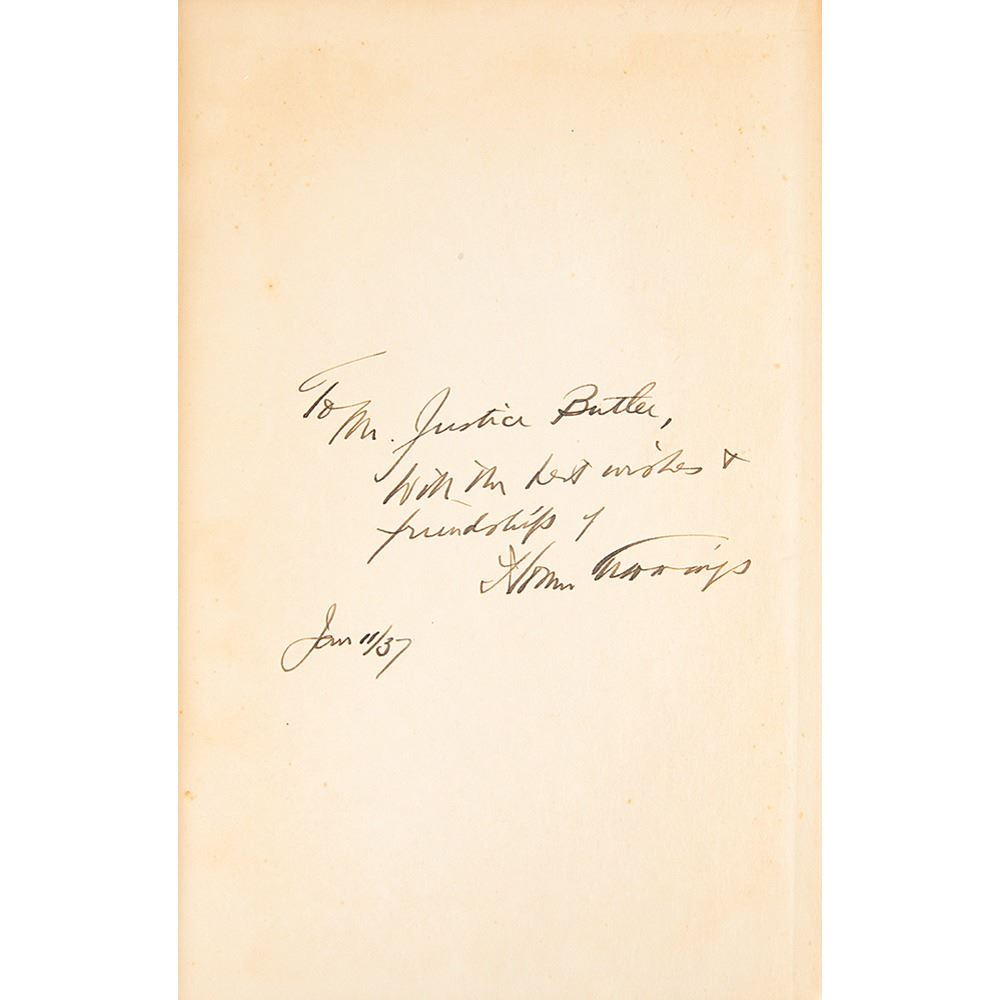 To
Mr. Justice Butler,
With the best wishes &
friendship of
Homer Cummings
Jan 11/37